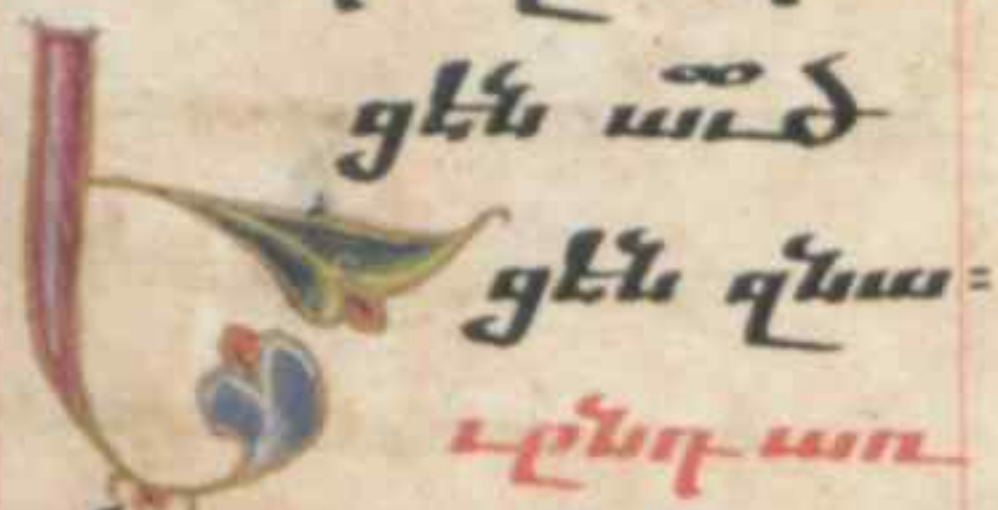 ցեն ա՟ծ
ցեն զնա։
ւընդ առ